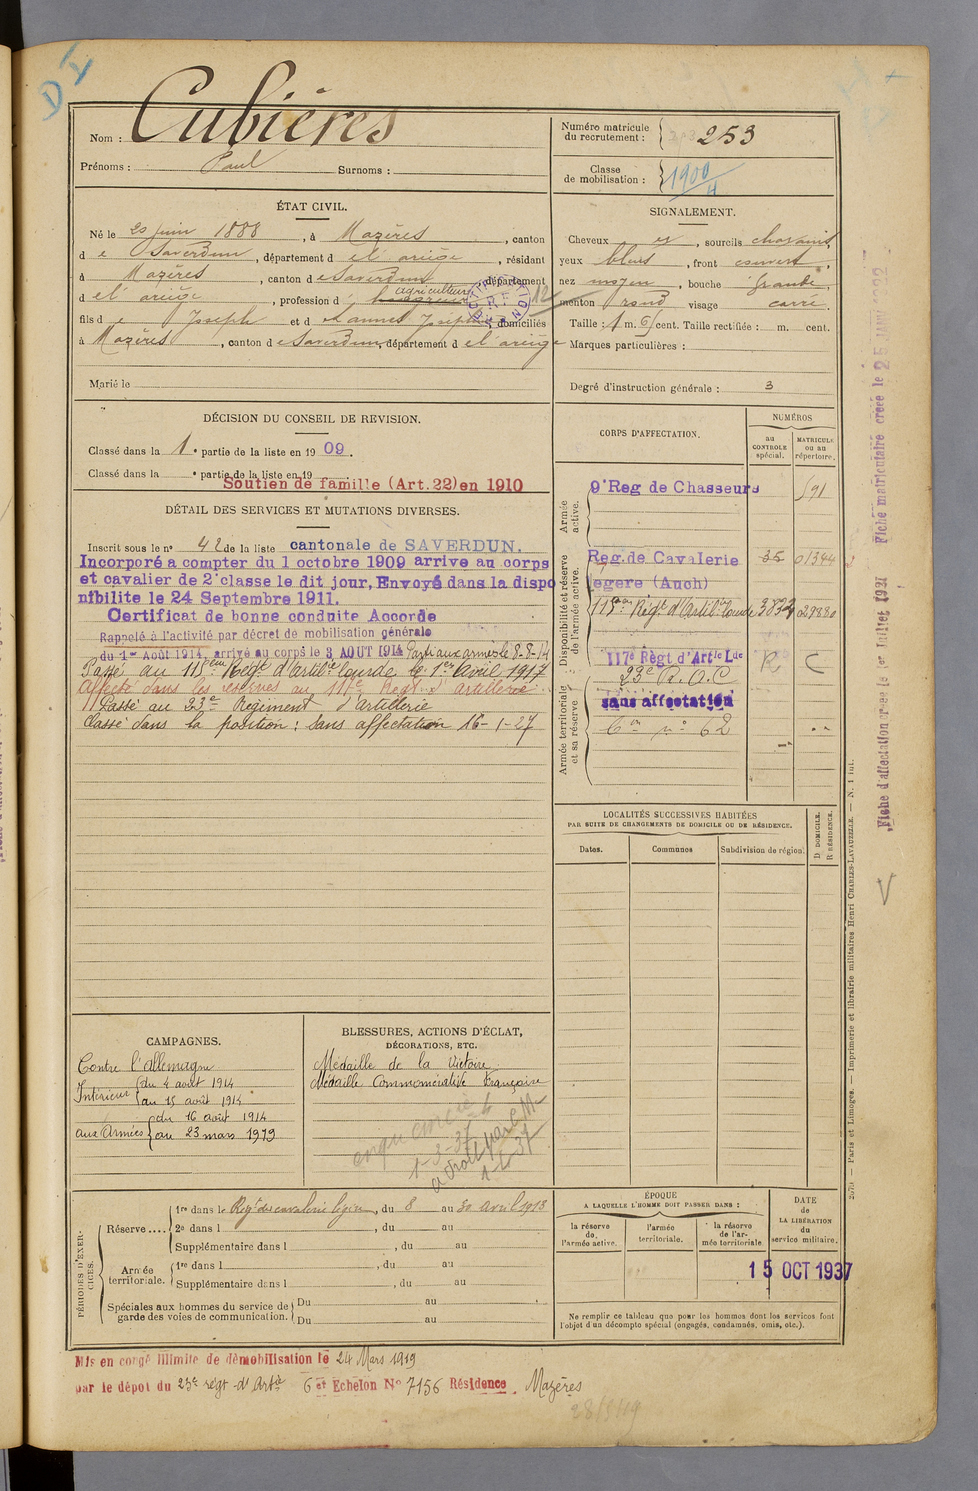 D I
Nom : Cubières
Prénoms : Paul Surnoms :
Numéro matricule du recrutement : 253
Classe de mobilisation : 1900/4
ÉTAT CIVIL.
Né le 20 juin 1888, à Mazères, canton
d e Saverdun, département d e l'ariège, résidant
à Mazères, canton d e Saverdun, département
d e l'ariège, profession d' agriculteur
fils d e Joseph et d domiciliés
à Mazères, canton d e Saverdun, département d e l'ariège
Marié le
SIGNALEMENT.
Cheveux et, sourcils chatains,
yeux bleus, front couvert,
nez moyen, bouche grande,
menton rond visage carré.
Taille : 1 m. 61 cent. Taille rectifiée : m. cent.
Marques particulières :
Degré d'instruction générale : 3
DÉCISION DU CONSEIL DE REVISION.
Classé dans la 1e partie de la liste en 19 09.
Classé dans la e partie de la liste en 19
Soutien de famille (Art. 22) en 1910
DÉTAIL DES SERVICES ET MUTATIONS DIVERSES.
Inscrit sous le n° 42 de la liste cantonale de SAVERDUN.
Incorporé a compter du 1 octobre 1909 arrive au corps
et cavalier de 2e classe le dit jour, Envoyé dans la dispo
nibilite le 24 Septembre 1911.
Certificat de bonne conduite Accorde
Rappelé à l'activité par décret de mobilisation générale
du 1er Août 1914, arrivé au corps le 3 AOUT 1914 Parti aux armées le 8-8-14
Passé au 115eme Regt d'Artilie lourde le 1er Avril 1917
Affecté dans les réserves au 117e Regt d'artillerie
Passé au 23e Régiment d'artillerie
Classé dans la position : sans affectation 16-1-27
CORPS D'AFFECTATION.
NUMÉROS
au CONTROLE spécial.
MATRICULE ou au répertoire.
Armée active.
9e Reg de Chasseurs 91
Disponibilité et réserve de l'armée active.
Reg. de Cavalerie 35 01344
legere (Auch)
115eme Régt d'Artilie Lourde 3832 029880
117e Règt d'Artle Lde R C
Armée territoriale et sa réserve
23e R.A.C
sans affectation
6em n° 62
LOCALITÉS SUCCESSIVES HABITÉES
PAR SUITE DE CHANGEMENTS DE DOMICILE OU DE RÉSIDENCE.
Dates. Communes Subdivision de région.
D DOMICILE. R RÉSIDENCE.
CAMPAGNES.
Contre l'allemagne
Intérieur du 4 août 1914
au 15 août 1914
aux Armées du 16 août 1914
au 23 mars 1919
BLESSURES, ACTIONS D'ÉCLAT,
DÉCORATIONS, ETC.
Médaille de la Victoire
Médaille Commémorative Française
1-3-37
PÉRIODES D'EXERCICES.
Réserve ....
1re dans le Regt de cavalerie légère, du 8 au 30 avril 1913
2e dans l , du au
Supplémentaire dans l , du au
Armée territoriale.
1re dans l , du au
Supplémentaire dans l , du au
Spéciales aux hommes du service de garde des voies de communication.
Du au
Du au
ÉPOQUE
A LAQUELLE L'HOMME DOIT PASSER DANS :
la réserve de l'armée active.
l'armée territoriale.
la réserve de l'armée territoriale.
DATE de LA LIBÉRATION du service militaire.
15 OCT 1937
Ne remplir ce tableau que pour les hommes dont les services font
l'objet d'un décompte spécial (engagés, condamnés, omis, etc.).
Mis en congé illimité de démobilisation le 24 Mars 1919
par le dépot du 23e régt d'Artie 6e Echelon N° 7156 Résidence Mazères
Fiche matriculaire créée le
Fiche d'affectation créée le 1er Juillet 1931
Paris et Limoges. — Imprimerie et librairie militaires Henri CHARLES-LAVAUZELLE. — N. 1 Int.